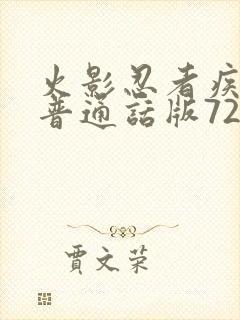 火影忍者疾
普通話版72
賈文荣